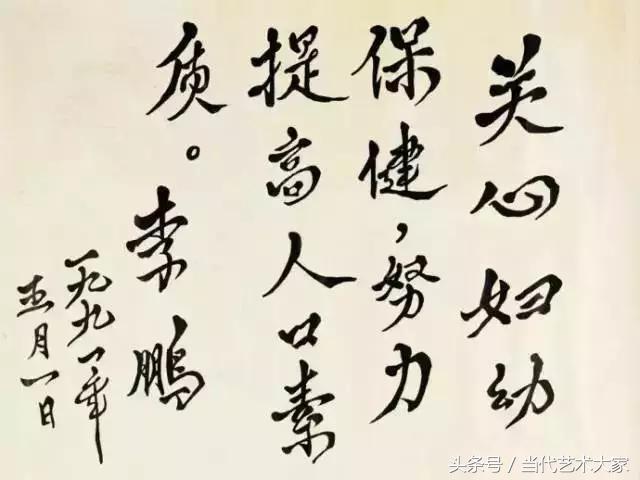 关心妇幼
保健，努力
提高人口素
质。李鹏
一九九一年
五月一日
头条号／当代艺术大家